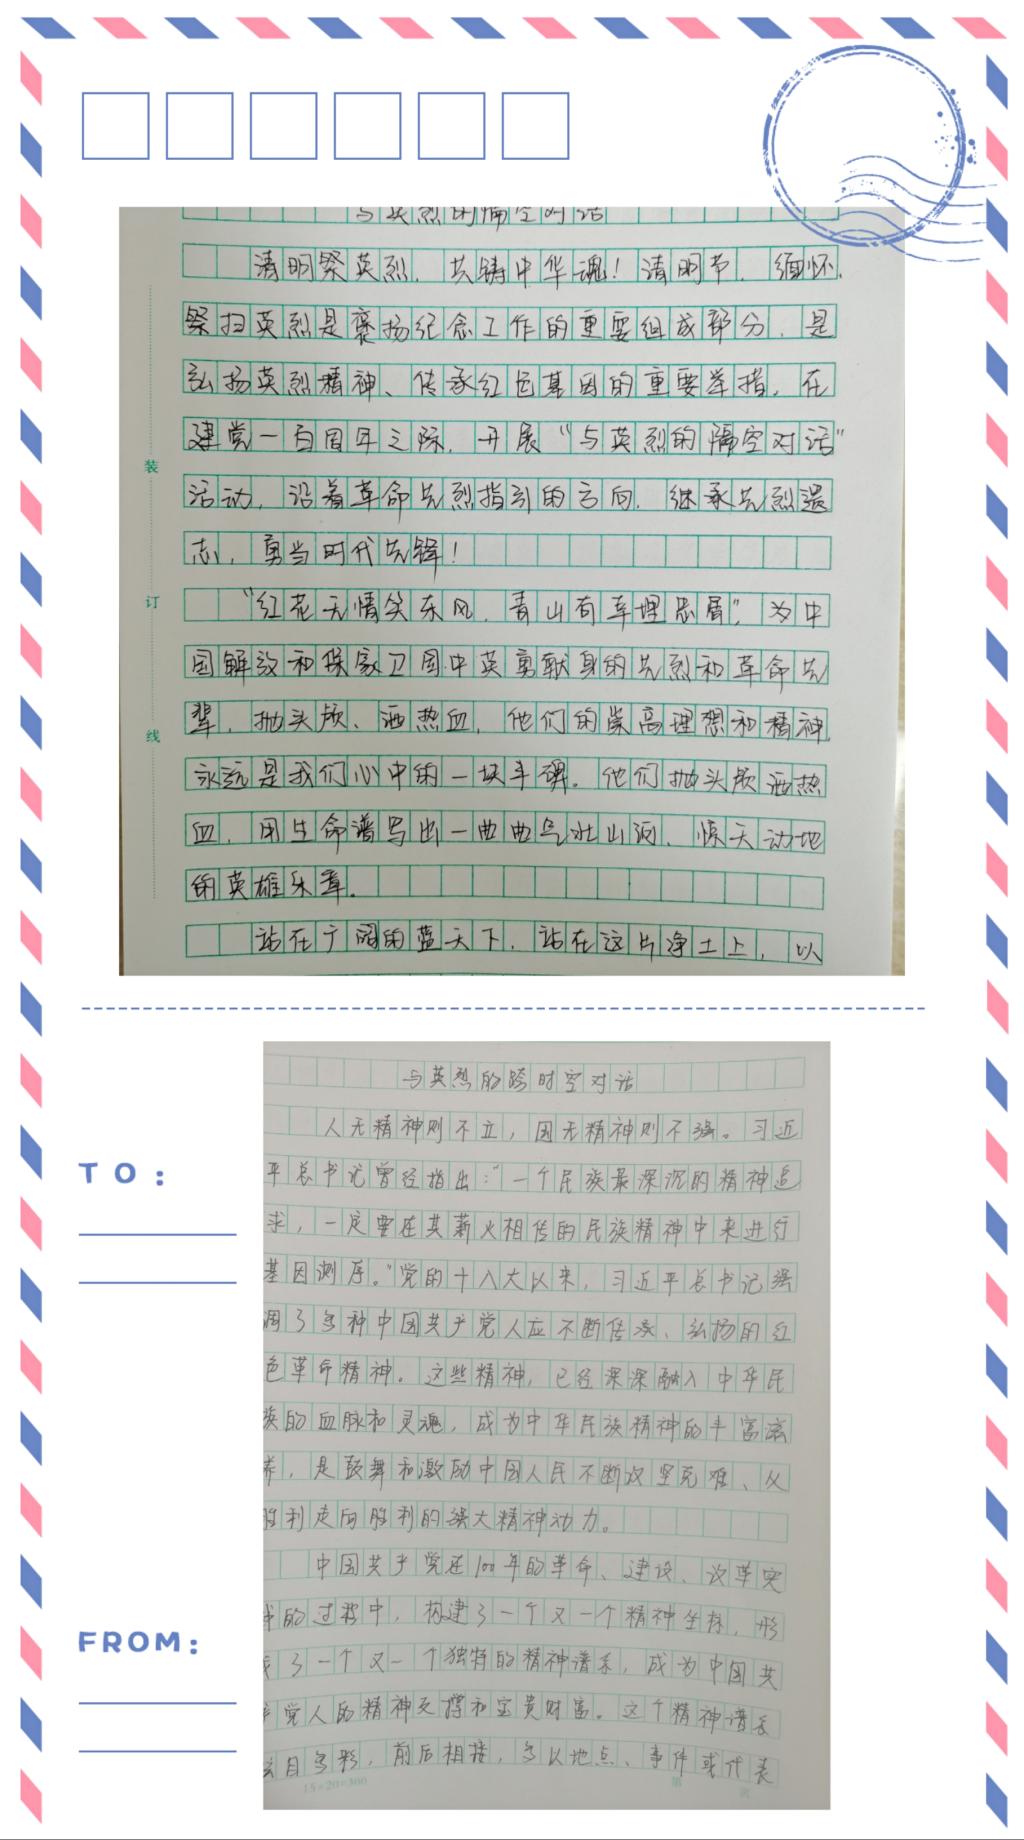 与英烈的隔空对话
清明祭英烈，共铸中华魂！清明节，缅怀、
祭扫英烈是褒扬纪念工作的重要组成部分，是
弘扬英烈精神、传承红色基因的重要举措。在
建党一百周年之际，开展“与英烈的隔空对话”
活动，沿着革命先烈指引的方向，继承先烈遗
志，勇当时代先锋！
“红花无情笑东风，青山有幸埋忠骨”，为中
国解放和保家卫国中英勇献身的先烈和革命先
辈，抛头颅、洒热血，他们的崇高理想和精神，
永远是我们心中的一块丰碑。他们抛头颅洒热
血，用生命谱写出一曲曲气壮山河、惊天动地
的英雄乐章。
站在广阔的蓝天下，站在这片净土上，以
装
订
线
与英烈的跨时空对话
人无精神则不立，国无精神则不强。习近
平总书记曾经指出：“一个民族最深沉的精神追
求，一定要在其薪火相传的民族精神中来进行
基因测序。”党的十八大以来，习近平总书记强
调了多种中国共产党人应不断传承、弘扬的红
色革命精神。这些精神，已经深深融入中华民
族的血脉和灵魂，成为中华民族精神的丰富滋
养，是鼓舞和激励中国人民不断攻坚克难、从
胜利走向胜利的强大精神动力。
中国共产党在100年的革命、建设、改革实
践的过程中，构建了一个又一个精神坐标，形
成了一个又一个独特的精神谱系，成为中国共
产党人的精神支撑和宝贵财富。这个精神谱系
丰富多彩，前后相接，多以地点、事件或代表
15×20=300
第
页
TO：
FROM：